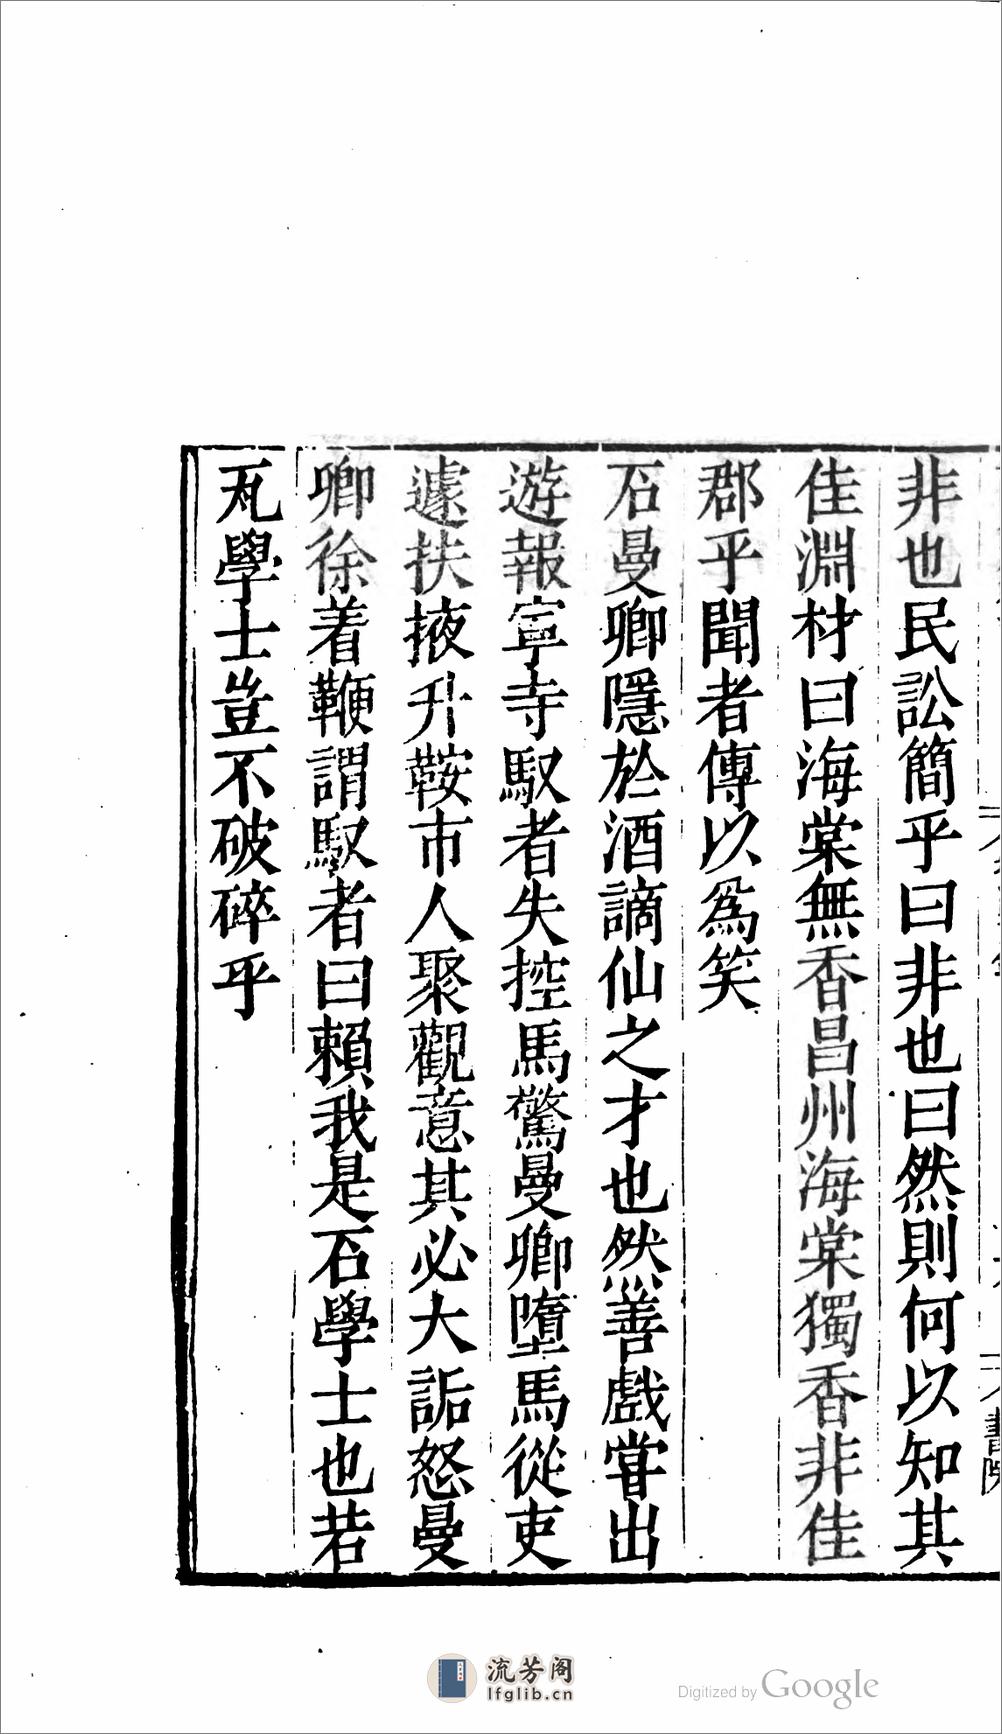 非也民訟簡乎曰非也曰然則何以知其
佳淵材曰海棠無香昌州海棠獨香非佳
郡乎聞者傳以爲笑
石曼卿隱於酒謫仙之才也然善戲甞出
遊報寧寺馭者失控馬驚曼卿墮馬從吏
遽扶掖升鞍市人聚觀意其必大詬怒曼
卿徐着鞭謂馭者曰賴我是石學士也若
瓦學士豈不破碎乎
書院
流芳阁
lfglib.cn
Digitized by Google